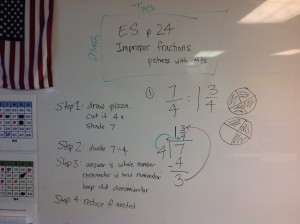 Tues
ES p 24
Improper fractions
pictures with
① 7/4 = 1 3/4
Step 1: draw pizza
cut it 4 x
shade 7
Step 2: divide 7÷4
Step 3: answer is whole number
remainder is new numerator
keep old denominator
Step 4: reduce if needed
1 3/4
4 7
4
3